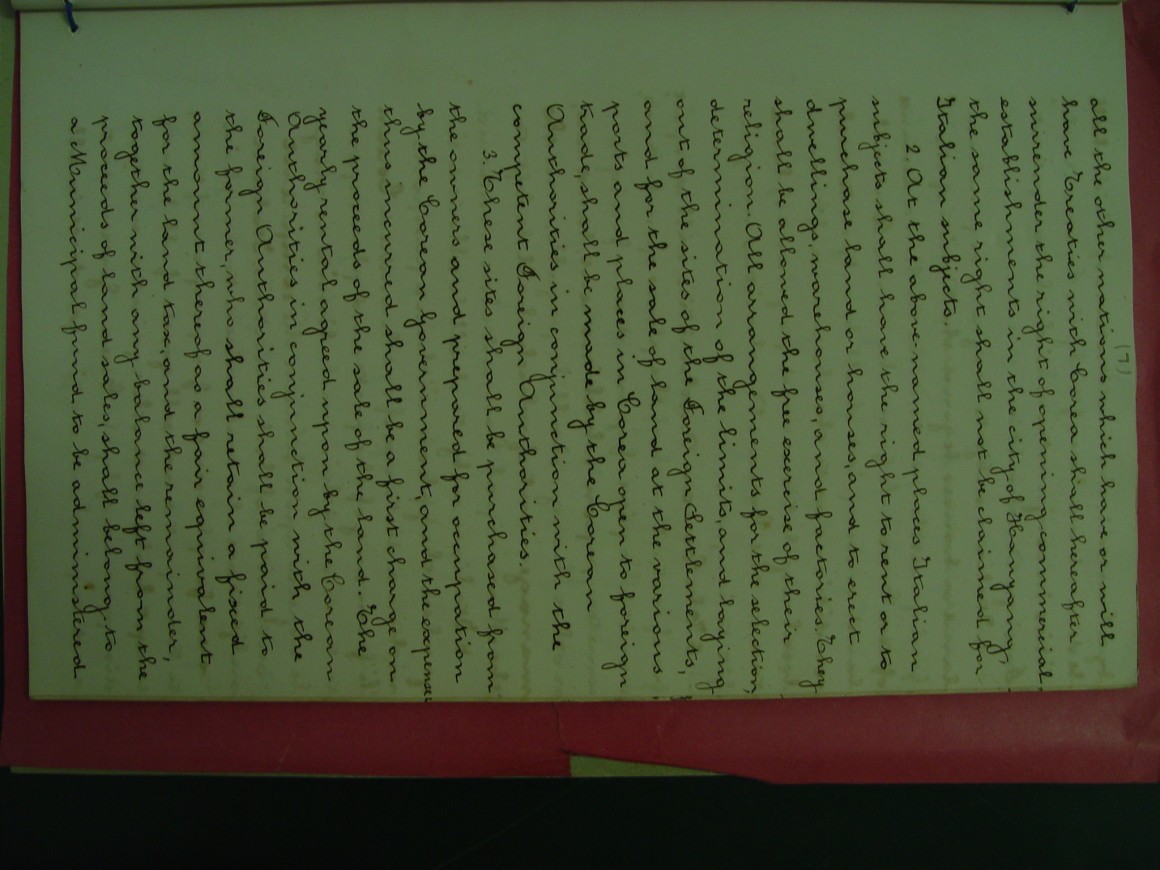 (7)
all the other nations which have or will
have Treaties with Corea shall hereafter
surrender the right of opening commercial
establishments in the city of Hanyang,
the same right shall not be claimed for
Italian subjects.
2. At the above named places Italian
subjects shall have the right to rent or to
purchase land or houses, and to erect
dwellings, warehouses, and factories. They
shall be allowed the free exercise of their
religion. All arrangements for the selection,
determination of the limits, and laying
out of the sites of the Foreign Settlements,
and for the sale of land at the various
ports and places in Corea open to foreign
trade, shall be made by the Corean
Authorities in conjunction with the
competent Foreign Authorities.
3. These sites shall be purchased from
the owners and prepared for occupation
by the Corean Government, and the expense
thus incurred shall be a first charge on
the proceeds of the sale of the land. The
yearly rental agreed upon by the Corean
Authorities in conjunction with the
Foreign Authorities shall be paid to
the former, who shall retain a fixed
amount thereof as a fair equivalent
for the land tax, and the remainder,
together with any balance left from the
proceeds of land sales, shall belong to
a Municipal fund to be administered